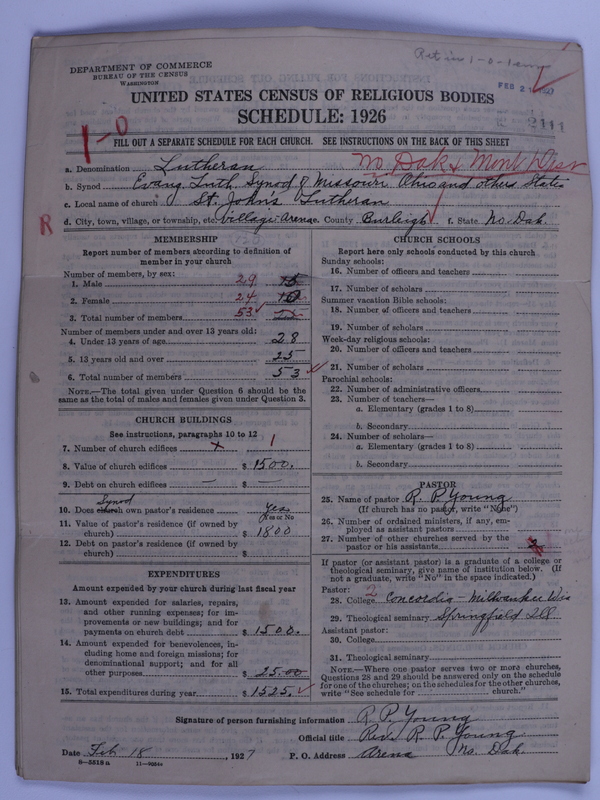 Ret in 1-0-1em
DEPARTMENT OF COMMERCE
BUREAU OF THE CENSUS
WASHINGTON
FEB 21 1927
UNITED STATES CENSUS OF RELIGIOUS BODIES
SCHEDULE: 1926
2111
1-0
FILL OUT A SEPARATE SCHEDULE FOR EACH CHURCH. SEE INSTRUCTIONS ON THE BACK OF THIS SHEET
No Dak & Mont Dist
a. Denomination Lutheran
b. Synod Evang. Luth. Synod of Missouri Ohio and others States
c. Local name of church St. John's Lutheran
R
d. City, town, village, or township, etc. village Arena e. County Burleigh f. State No. Dak.
MEMBERSHIP
Report number of members according to definition of member in your church
Number of members, by sex:
1. Male 29 15
2. Female 24 10
3. Total number of members 53
Number of members under and over 13 years old:
4. Under 13 years of age 28
5. 13 years old and over 25
6. Total number of members 53
NOTE.—The total given under Question 6 should be the same as the total of males and females given under Question 3.
CHURCH BUILDINGS
See instructions, paragraphs 10 to 12
7. Number of church edifices x 1
8. Value of church edifices $ 1500.
9. Debt on church edifices — $ —
Synod
10. Does church own pastor's residence Yes
(Yes or No)
11. Value of pastor's residence (if owned by church) $ 1800
12. Debt on pastor's residence (if owned by church) $
EXPENDITURES
Amount expended by your church during last fiscal year
13. Amount expended for salaries, repairs, and other running expenses; for improvements or new buildings; and for payments on church debt $ 1500.
14. Amount expended for benevolences, including home and foreign missions; for denominational support; and for all other purposes $ 25.00
15. Total expenditures during year $ 1525.
CHURCH SCHOOLS
Report here only schools conducted by this church
Sunday schools:
16. Number of officers and teachers
17. Number of scholars
Summer vacation Bible schools:
18. Number of officers and teachers
19. Number of scholars
Week-day religious schools:
20. Number of officers and teachers
21. Number of scholars
Parochial schools:
22. Number of administrative officers
23. Number of teachers—
a. Elementary (grades 1 to 8)
b. Secondary
24. Number of scholars—
a. Elementary (grades 1 to 8)
b. Secondary
PASTOR
25. Name of pastor R. P. Young
(If church has no pastor, write "None")
26. Number of ordained ministers, if any, employed as assistant pastors
27. Number of other churches served by the pastor or his assistants 2
If pastor (or assistant pastor) is a graduate of a college or theological seminary, give name of institution below. (If not a graduate, write "No" in the space indicated.)
Pastor:
28. College 2 Concordia - Milwaukee Wis
29. Theological seminary Springfield Ill
Assistant pastor:
30. College
31. Theological seminary
NOTE.—Where one pastor serves two or more churches, Questions 28 and 29 should be answered only on the schedule for one of the churches; on the schedules for the other churches, write "See schedule for church."
Signature of person furnishing information R P. Young
Official title Rev. R. P. Young
Date Feb 18, 1927 P. O. Address Arena No. Dak.
8—5518a 11—9034a